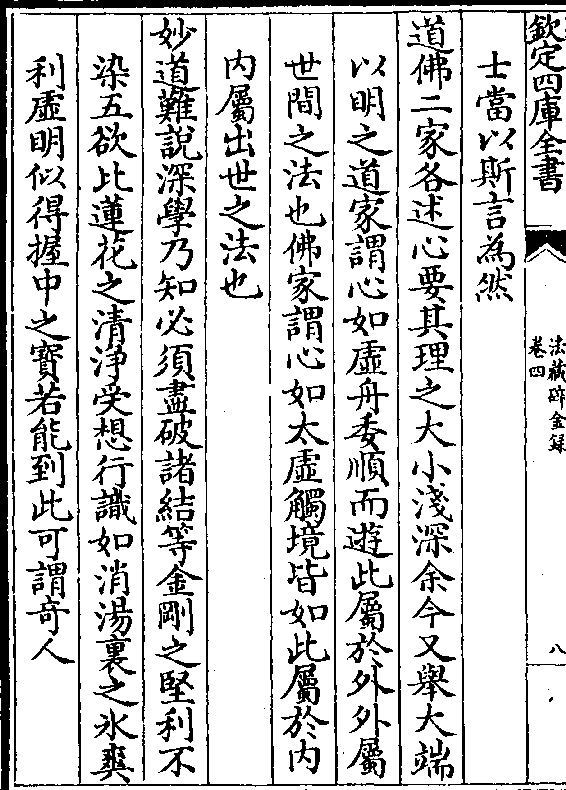 欽定四庫全書
法藏碎金録
卷四
八
士當以斯言為然
道佛二家各述心要其理之大小淺深余今又舉大端
以明之道家謂心如虛舟委順而遊此屬於外外屬
世間之法也佛家謂心如太虛觸境皆如此屬於内
内屬出世之法也
妙道難說深學乃知必須盡破諸結等金剛之堅利不
染五欲比蓮花之清淨受想行識如消湯裏之氷爽
利虛明似得握中之寳若能到此可謂竒人